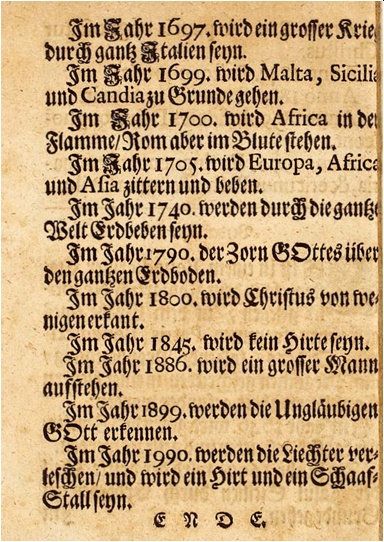 Im Jahr 1697. wird ein grosser Krie
durch gantz Italien seyn.
Im Jahr 1699. wird Malta, Sicili
und Candia zu Grunde gehen.
Im Jahr 1700. wird Africa in de
Flamme/ Rom aber im Blute stehen.
Im Jahr 1705. wird Europa, Africa
und Asia zittern und beben.
Im Jahr 1740. werden durch die gantze
Welt Erdbeben seyn.
Im Jahr 1790. der Zorn GOttes über
den gantzen Erdboden.
Im Jahr 1800. wird Christus von we-
nigen erkant.
Im Jahr 1845. wird kein Hirte seyn.
Im Jahr 1886. wird ein grosser Mann
aufstehen.
Im Jahr 1899. werden die Ungläubigen
GOtt erkennen.
Im Jahr 1990. werden die Liechter ver-
leschen/ und wird ein Hirt und ein Schaaf-
Stall seyn.
E N D E.